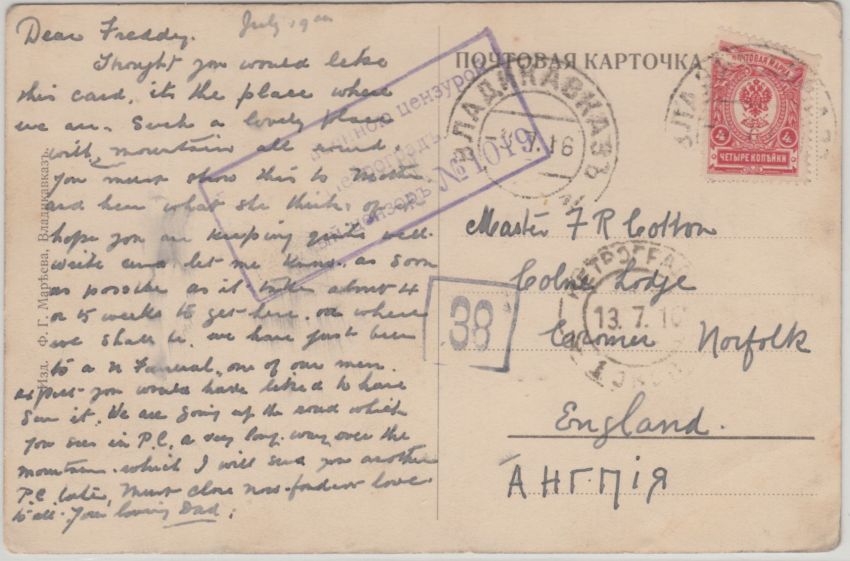 Dear Freddy. July 19th
Thought you would like
this card, its the place where
we are. Such a lovely place
with mountains all round.
You must show this to Mother
and hear what she thinks of it
hope you are keeping quite well.
write and let me know, as soon
as possible as it takes about 4
or 5 weeks to get here, or where
we shall be. we have just been
to a Funeral, one of our men.
expect you would have liked to have
seen it. We are going up the road which
you see in P.C. a very long way over the
mountains. which I will send you another
P.C. later, Must close now. fondest love
to all. Your loving Dad.
Изд. Ф. Г. Марѣева, Владикавказъ
ПОЧТОВАЯ КАРТОЧКА
военною цензурою
Петроградъ
цензоръ № 1019
ВЛАДИКАВКАЗЪ
7.16
ПОЧТОВАЯ МАРКА
4 4
ЧЕТЫРЕ КОПѢЙКИ
Master F R Cotton
Colne Lodge
Cromer Norfolk
England.
АНГПІЯ
38
ПЕТРОГРАД
13.7.16